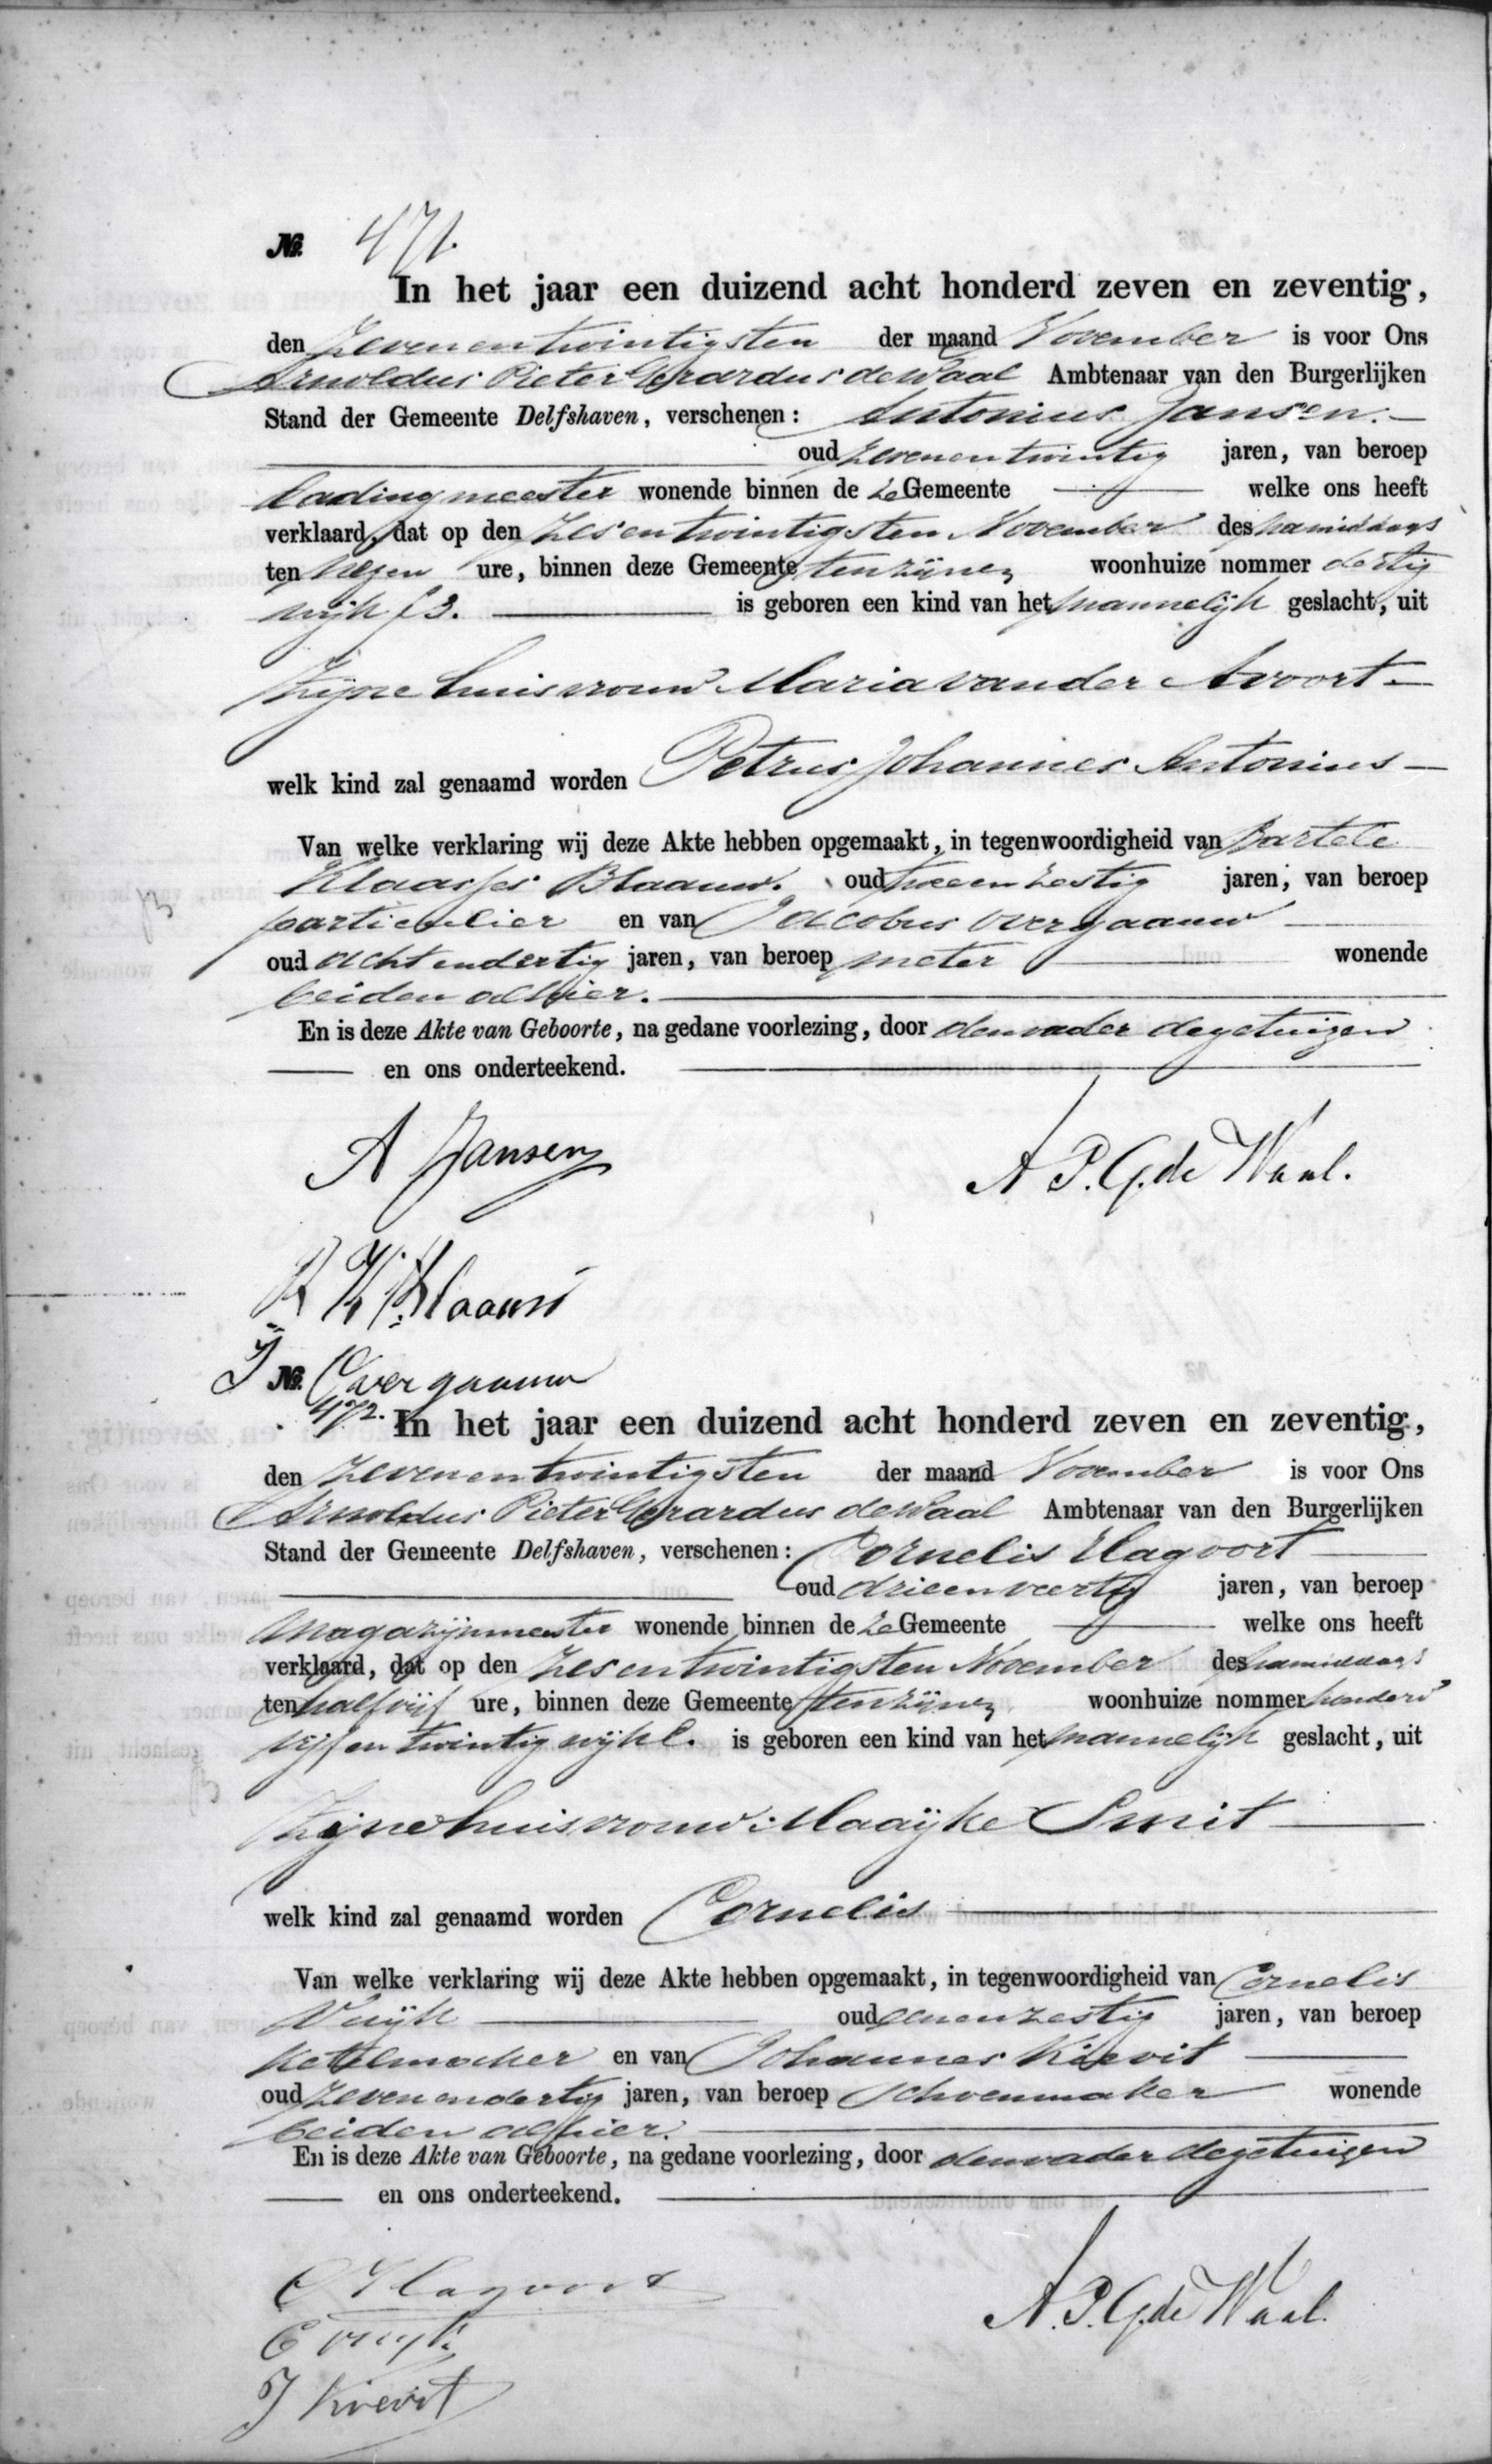 No. 471.
In het jaar een duizend acht honderd zeven en zeventig,
den zevenentwintigsten der maand November is voor Ons
Arnoldus Pieter Gerardus de Waal Ambtenaar van den Burgerlijken
Stand der Gemeente Delfshaven, verschenen: Antonius Jansen.
oud zevenentwintig jaren, van beroep
ladingmeester wonende binnen de ze Gemeente welke ons heeft
verklaard, dat op den zesentwintigsten November des namiddags
ten negen ure, binnen deze Gemeente ten zijnen woonhuize nommer dertig
wijk f3. is geboren een kind van het mannelijk geslacht, uit
zijne huisvrouw Maria van der Avoort
welk kind zal genaamd worden Petrus Johannes Antonius
Van welke verklaring wij deze Akte hebben opgemaakt, in tegenwoordigheid van Bartele
Klaasjes Blaauw. oud tweeenzestig jaren, van beroep
particulier en van Jacobus Overgaauw
oud achtendertig jaren, van beroep meter wonende
beiden alhier.
En is deze Akte van Geboorte, na gedane voorlezing, door den vader de getuigen
en ons onderteekend.
A Jansen
A. P. G. de Waal.
B. K. Blaauw
J Overgaauw
No. 472.
In het jaar een duizend acht honderd zeven en zeventig,
den zevenentwintigsten der maand November is voor Ons
Arnoldus Pieter Gerardus de Waal Ambtenaar van den Burgerlijken
Stand der Gemeente Delfshaven, verschenen: Cornelis Hagoort
oud drieenveertig jaren, van beroep
magazijnmeester wonende binnen de ze Gemeente welke ons heeft
verklaard, dat op den zesentwintigsten November des namiddags
ten half vijf ure, binnen deze Gemeente ten zijnen woonhuize nommer honderd
vijfentwintig wijk l. is geboren een kind van het mannelijk geslacht, uit
zijne huisvrouw Maaijke Smit
welk kind zal genaamd worden Cornelis
Van welke verklaring wij deze Akte hebben opgemaakt, in tegenwoordigheid van Cornelis
Vuijk oud eenenzestig jaren, van beroep
ketelmaker en van Johannes Kievit
oud zevenendertig jaren, van beroep schoenmaker wonende
beiden alhier.
En is deze Akte van Geboorte, na gedane voorlezing, door den vader de getuigen
en ons onderteekend.
C Hagoort
A. P. G. de Waal.
C Vuijk
J Kievit